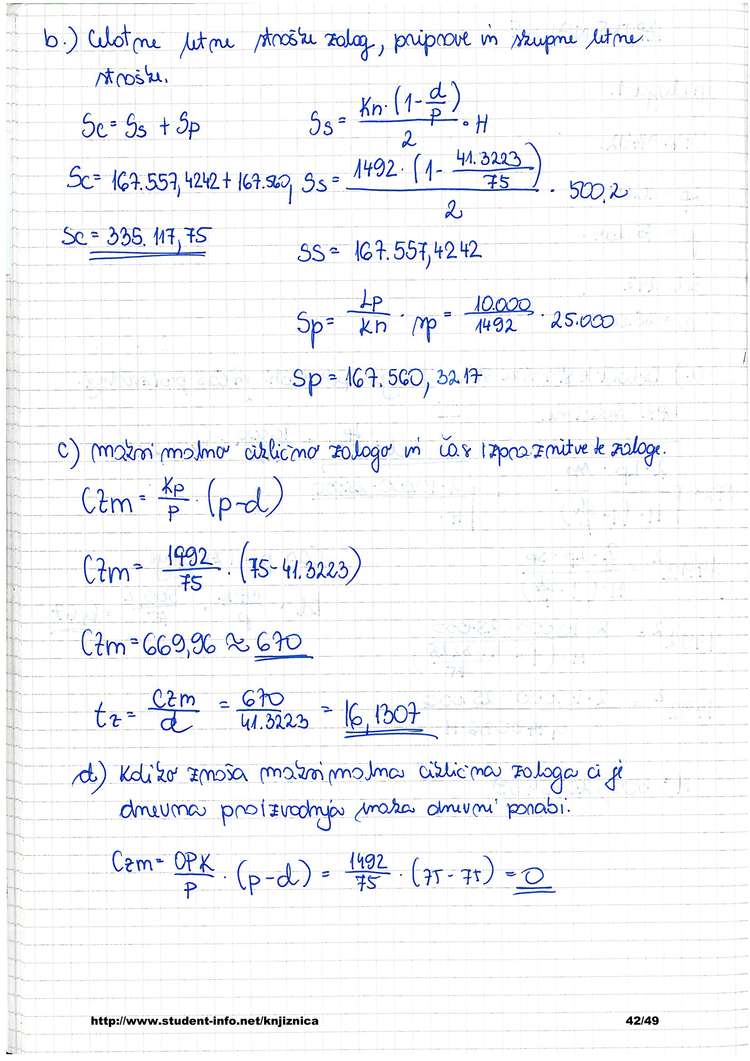 b.) Celotne letne stroške zalog, priprave in skupne letne
stroške.
Sc = Ss + Sp
Ss = Kn · (1 - d/p) / 2 · H
Sc = 167.557,4242 + 167.560,
Ss = 1492 · (1 - 41.3223/75) / 2 · 500,2
Sc = 335.117,75
SS = 167.557,4242
Sp = Lp/Kn · np = 10.000/1492 · 25.000
Sp = 167.560,3217
c) maksimalno ciklično zalogo in čas izpraznitve te zaloge.
CZm = Kp/p · (p-d)
CZm = 1492/75 · (75-41.3223)
CZm = 669,96 ≈ 670
tz = CZm/d = 670/41.3223 = 16,1307
d) Koliko znaša maksimalna ciklična zaloga či je
dnevna proizvodnja enaka dnevni porabi.
Czm = OPK/p · (p-d) = 1492/75 · (75-75) = 0
http://www.student-info.net/knjiznica 42/49